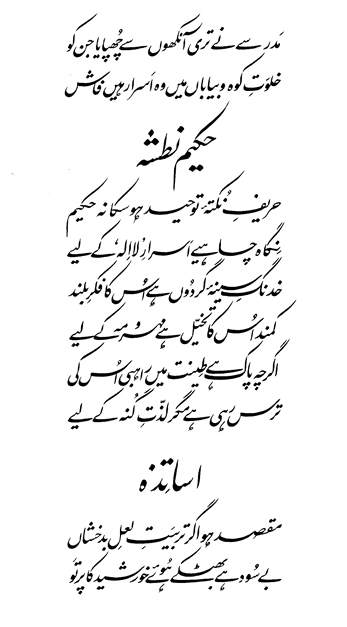 مَدرسے نے تری آنکھوں سے چھُپایا جن کو
خلوَتِ کوہ و بیاباں میں وہ اَسرار ہیں فاش
حکیم نطشہ
حریفِ نُکتۂ توحید ہو سکا نہ حکیم
نِگاہ چاہیے اَسرارِ لا اِلہ کے لیے
خدنگِ سینۂ گردُوں ہے اُس کا فکرِ بلند
کمند اُس کا تخیّل ہے مہرومہ کے لیے
اگرچہ پاک ہے طِینت میں راہبی اُس کی
ترس رہی ہے مگر لذّتِ گُنہ کے لیے
اساتذہ
مقصد ہو اگر تربیَتِ لعلِ بدخشاں
بے سُود ہے بھٹکے ہُوئے خورشید کا پرتَو